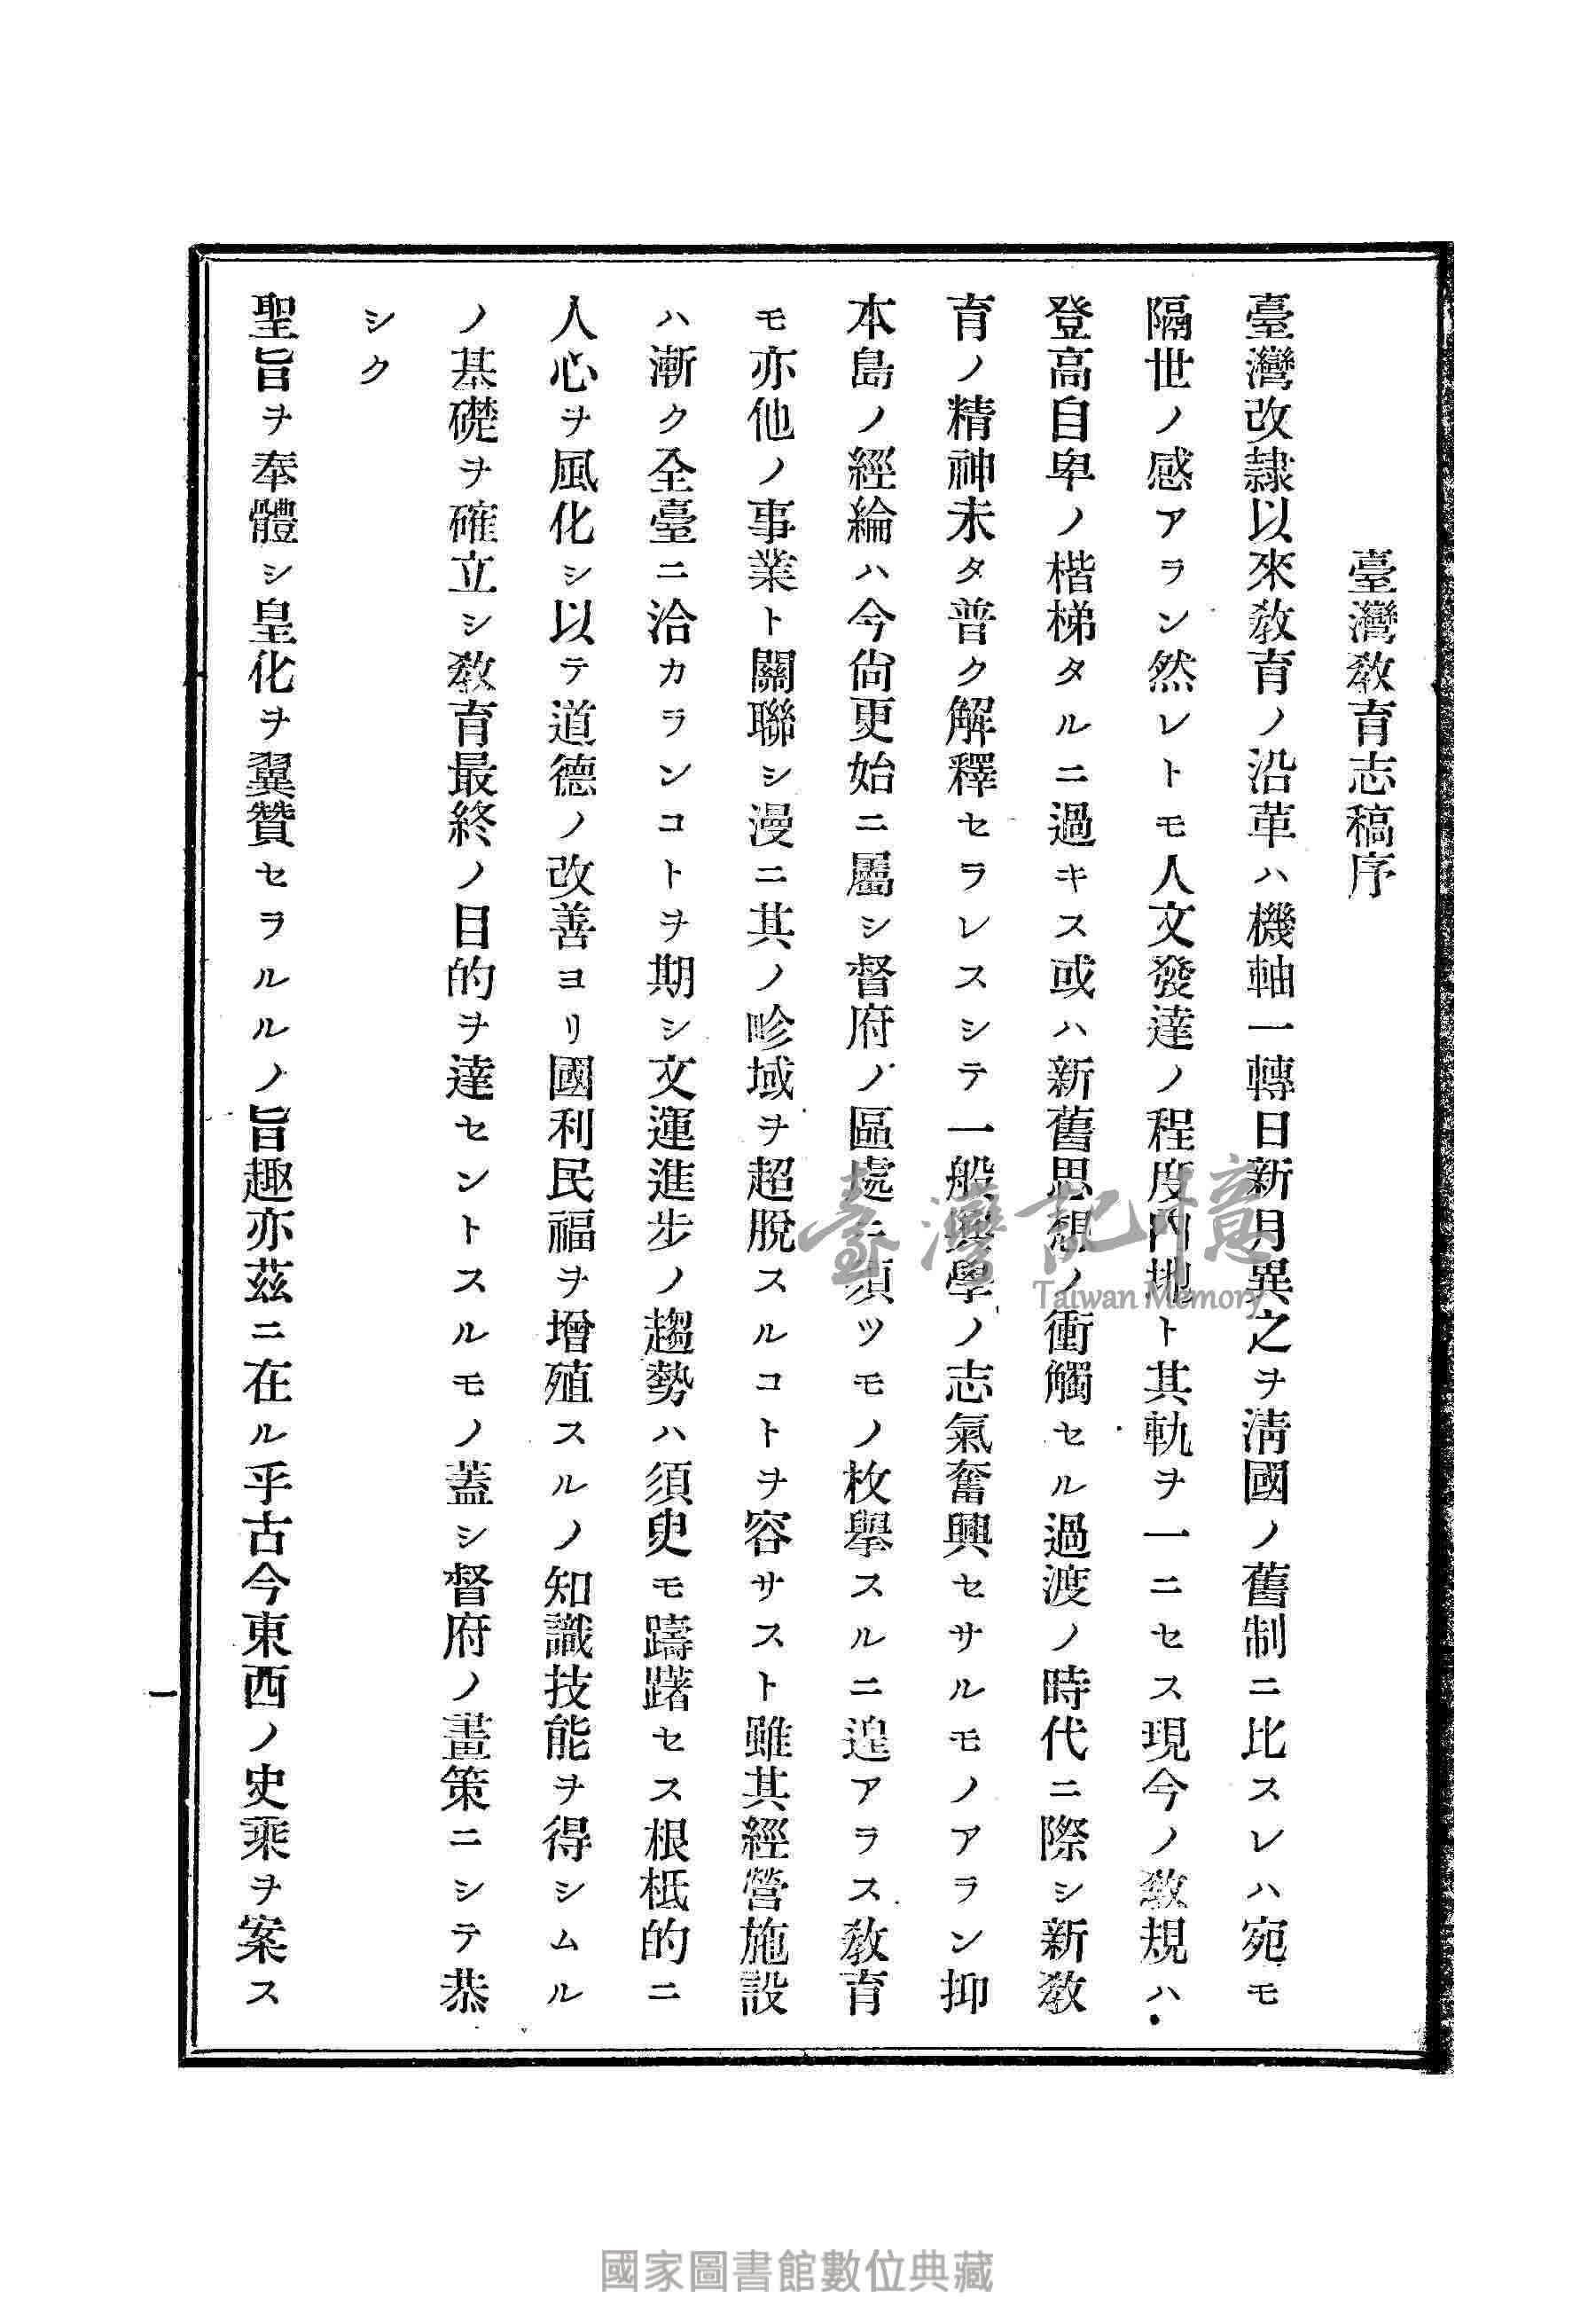 臺灣敎育志稿序
臺灣改隷以來敎育ノ沿革ハ機軸一轉日新月異之ヲ淸國ノ舊制ニ比スレハ宛モ
隔世ノ感アラン然レトモ人文發達ノ程度內地ト其軌ヲ一ニセス現今ノ敎規ハ
登高自卑ノ楷梯タルニ過キス或ハ新舊思想ノ衝觸セル過渡ノ時代ニ際シ新敎
育ノ精神未タ普ク解釋セラレスシテ一般興學ノ志氣奮興セサルモノアラン抑
本島ノ經綸ハ今尙更始ニ屬シ督府ノ區處ニ須ツモノ枚擧スルニ遑アラス敎育
モ亦他ノ事業ト關聯シ漫ニ其ノ畛域ヲ超脫スルコトヲ容サスト雖其經營施設
ハ漸ク全臺ニ洽カランコトヲ期シ文運進步ノ趨勢ハ須臾モ躊躇セス根柢的ニ
人心ヲ風化シ以テ道德ノ改善ヨリ國利民福ヲ增殖スルノ知識技能ヲ得シムル
ノ基礎ヲ確立シ敎育最終ノ目的ヲ達セントスルモノ蓋シ督府ノ畫策ニシテ恭
シク
聖旨ヲ奉體シ皇化ヲ翼贊セラルルノ旨趣亦茲ニ在ル乎古今東西ノ史乘ヲ案ス
一
臺灣記憶
Taiwan Memory
國家圖書館數位典藏